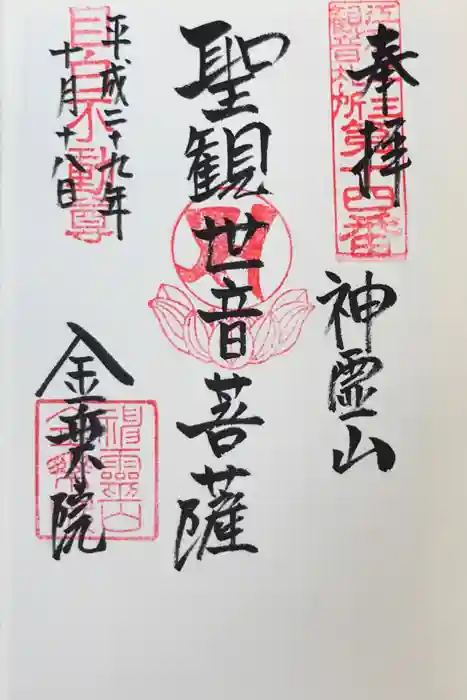 奉拝
神霊山
聖観世音菩薩
平成二十九年
十月十八日
金乗院
第十四番
目白不動尊
神靈山